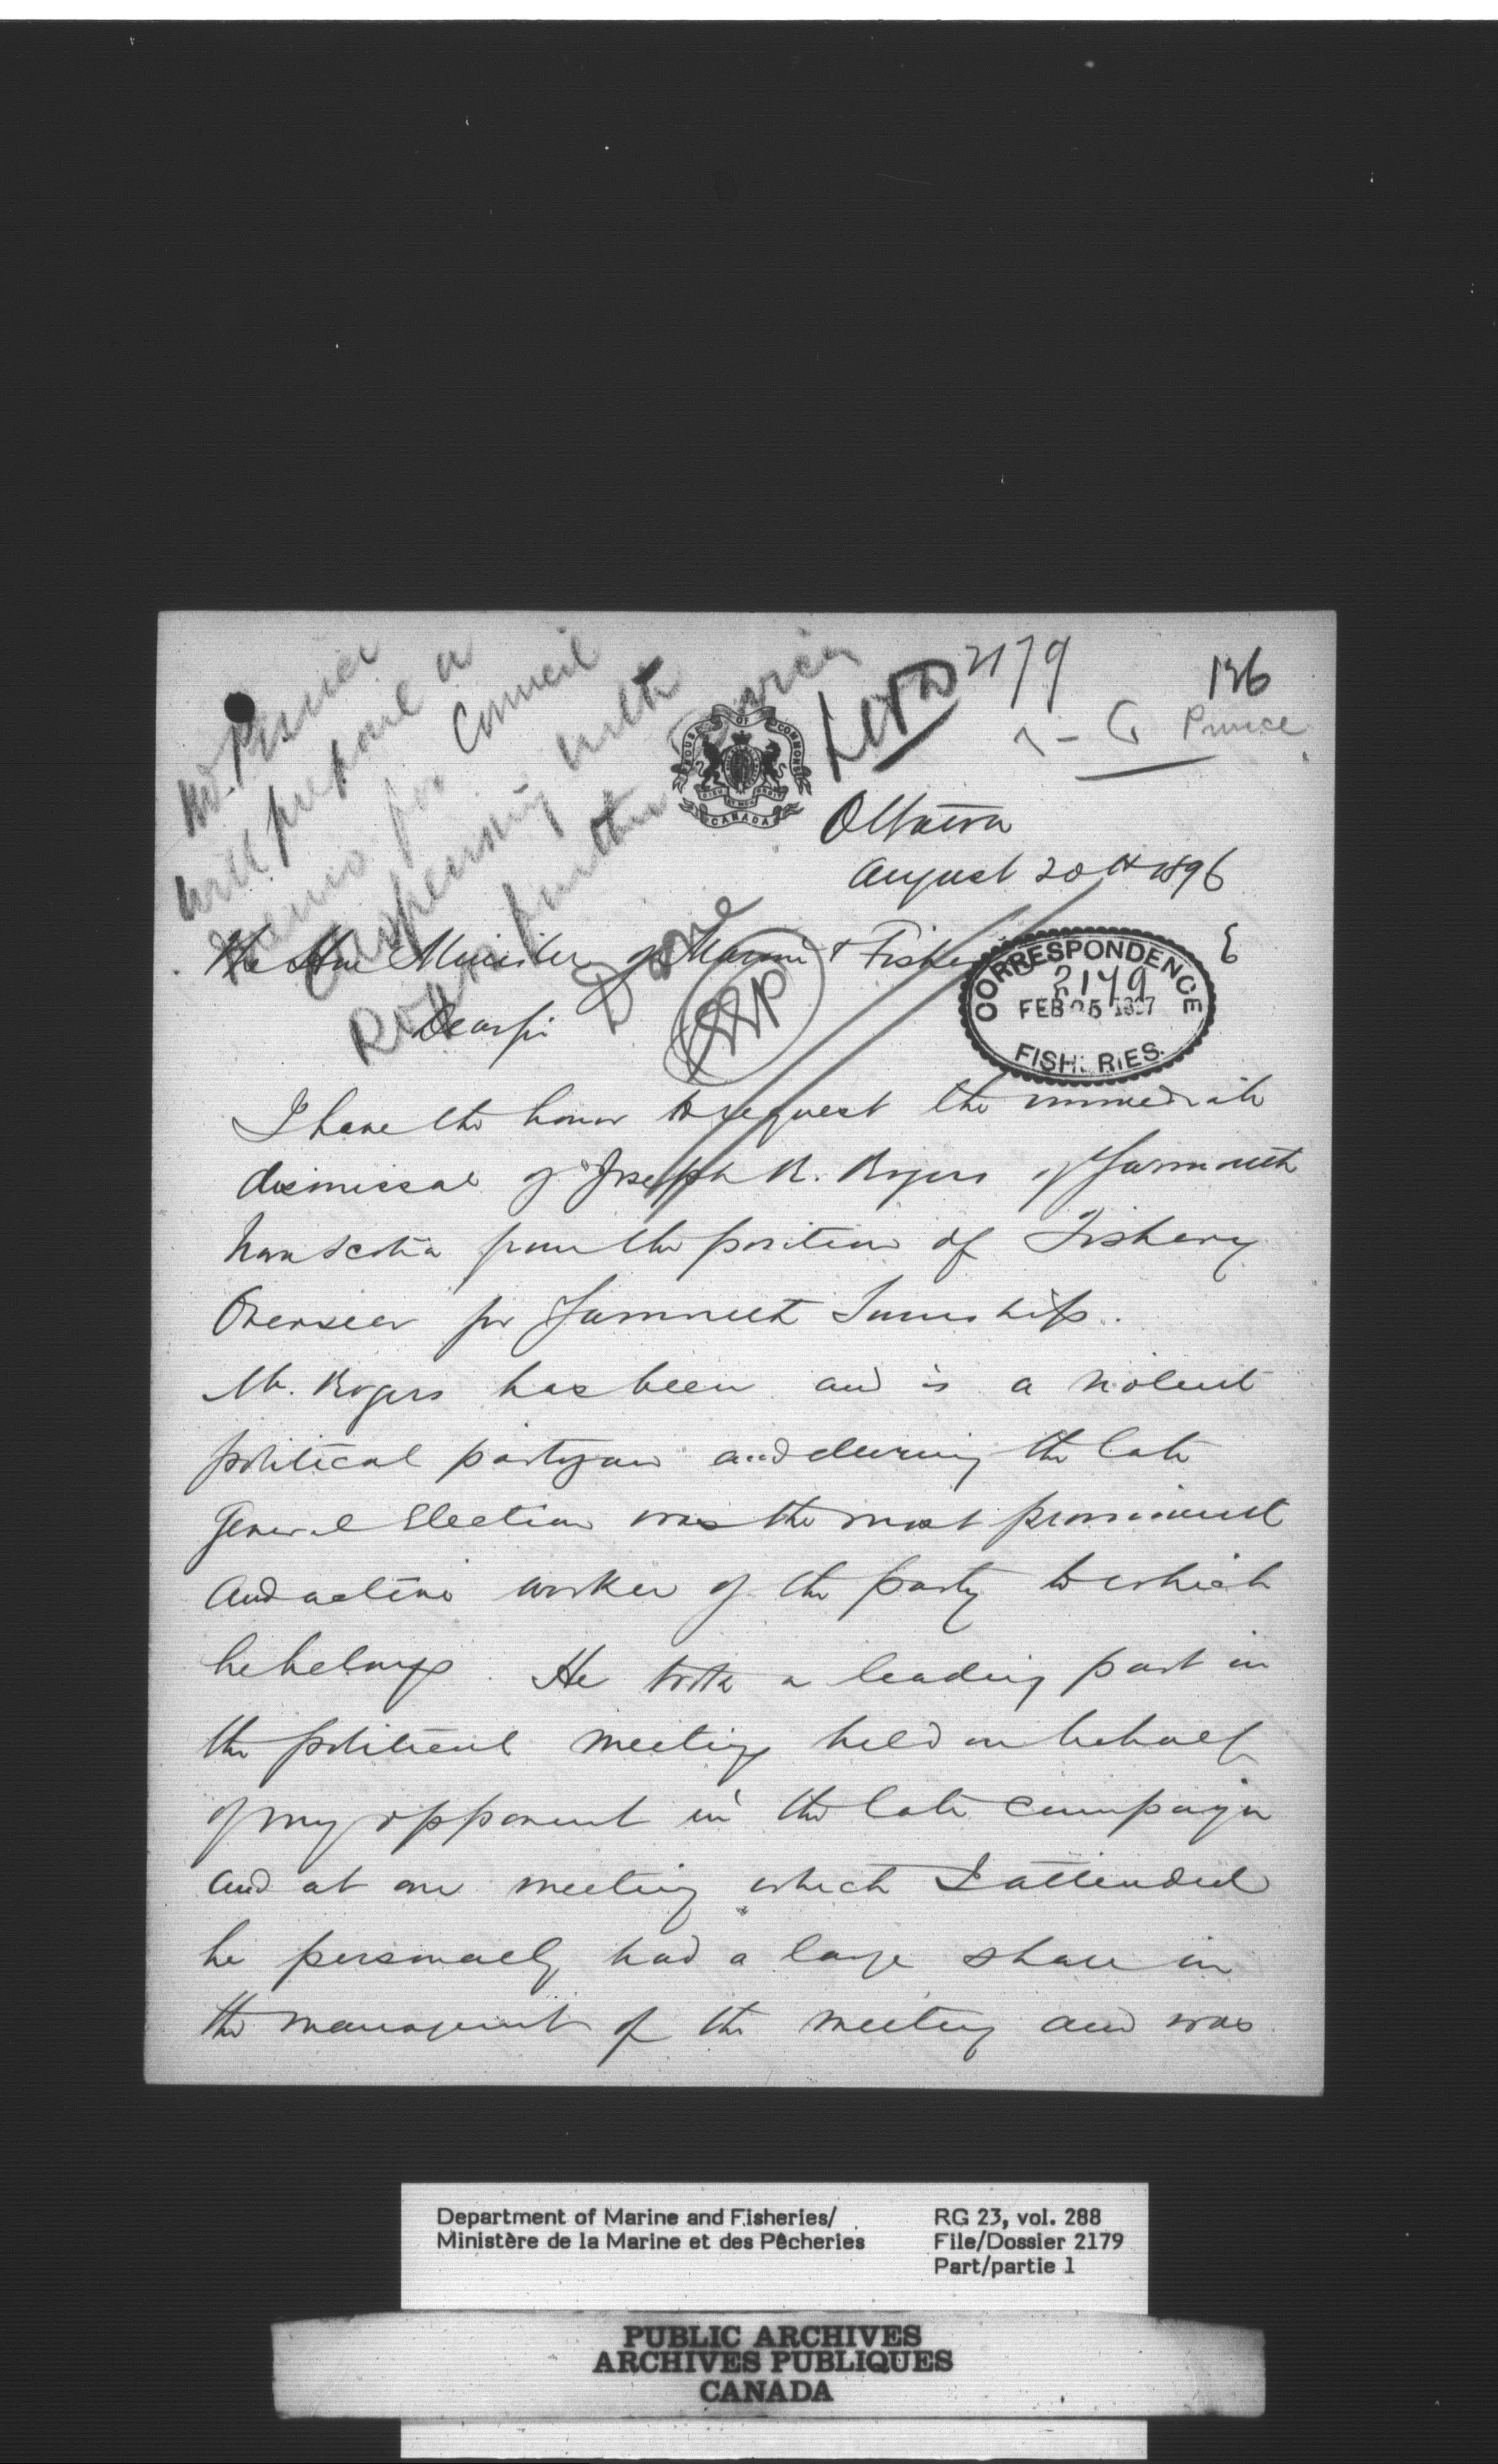 2179
126
Prince
Mr. Venning
will prepare a
memo for Council
dispensing with
Rogers further services
Done
EEP
HOUSE OF COMMONS
CANADA
Ottawa
August 20th 1896
The Hon Minister of Marine & Fisheries
CORRESPONDENCE
2179
FEB 25 1897
FISHERIES.
Dear Sir
I have the honor to request the immediate
dismissal of Joseph R. Rogers of Yarmouth
Nova Scotia from the position of Fishery
Overseer for Yarmouth Township.
Mr. Rogers has been and is a violent
political partyzan and during the late
General Election was the most prominent
and active worker of the party to which
he belongs. He took a leading part in
the political meetings held on behalf
of my opponent in the late campaign
and at one meeting which I attended
he personally had a large share in
the management of the meeting and was
Department of Marine and Fisheries/
Ministère de la Marine et des Pêcheries
RG 23, vol. 288
File/Dossier 2179
Part/partie 1
PUBLIC ARCHIVES
ARCHIVES PUBLIQUES
CANADA